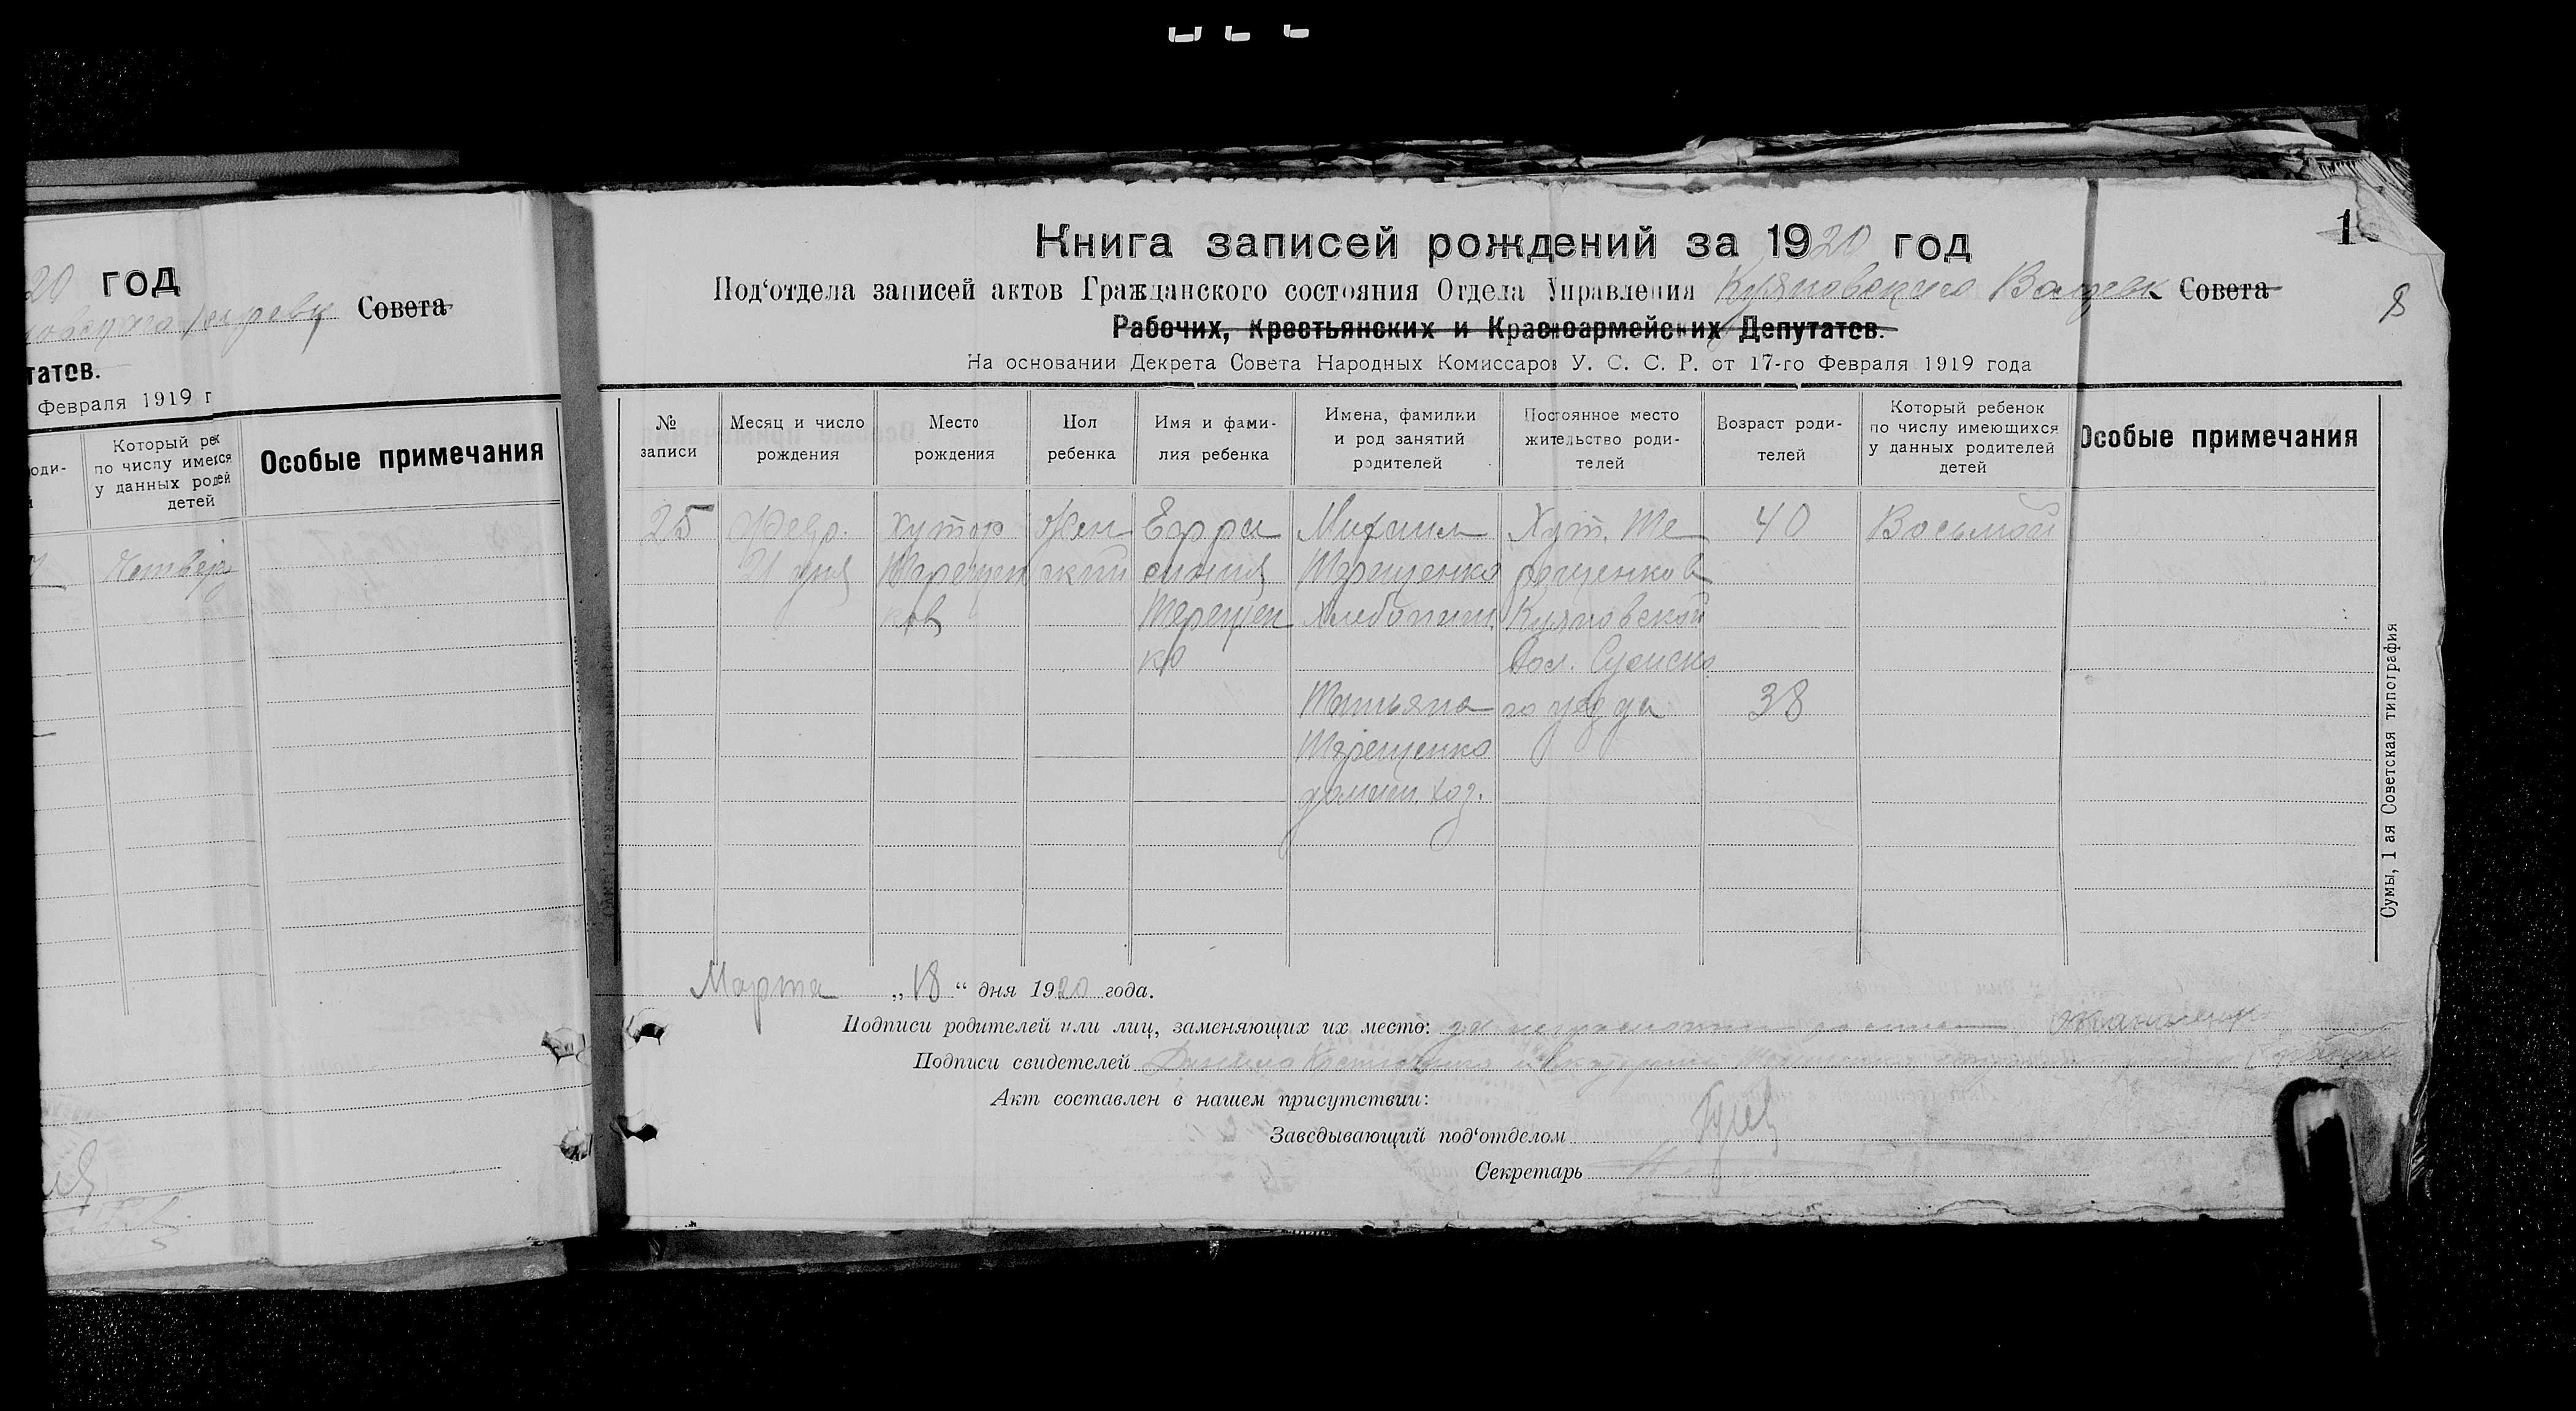 20 год
Совета
татов.
Февраля 1919 г
Который реб
по числу имеется
у данных родей
детей
Особые примечания
Книга записей рождений за 1920 год
1
Под‘отдела записей актов Гражданского состояния Отдела Управления Куяновского Совета
8
Рабочих, Крестьянских и Красноармейских Депутатов.
На основании Декрета Совета Народных Комиссаров У. С. С. Р. от 17-го Февраля 1919 года
№ записи
Месяц и число рождения
Место рождения
Пол ребенка
Имя и фами-
лия ребенка
Имена, фамилии
и род занятий
родителей
Постоянное место
жительство роди-
телей
Возраст роди-
телей
Который ребенок
по числу имеющихся
у данных родителей
детей
Особые примечания
25
Февр.
21 дня
Хутор
Терещен
ков
Жен
ский
Ефро
синия
Терещен
ко
Михаил
Терещенко
Хлебопаш.
Татьяна
Терещенко
домаш. хоз.
Хут. Те
рещенков
Куяновской
Вол. Сумско
го уезда
40
38
Восьмой
Марта „18“ дня 1920 года.
Подписи родителей или лиц, заменяющих их место:
Подписи свидетелей
Акт составлен в нашем присутствии:
Заведывающий под‘отделом
Секретарь
Сумы, 1 ая Советская типография